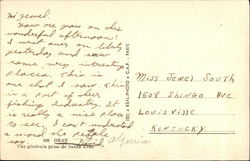 Hi Jewel.
How are you on this
wonderful afternoon?
I went over on liberty
yesterday and saw
some very interesting
places. This is
one that I saw. This
is a part of their
fishing industry. It
is really a nice place
to see. I can't understand
a word the people
say.
Algeria
ORAN
Vue générale prise de Santa Cruz
REAL-PHOTO
C.A.P. PARIS
Miss Jewel South
1608 Shingo Ave
Louisville
Kentucky